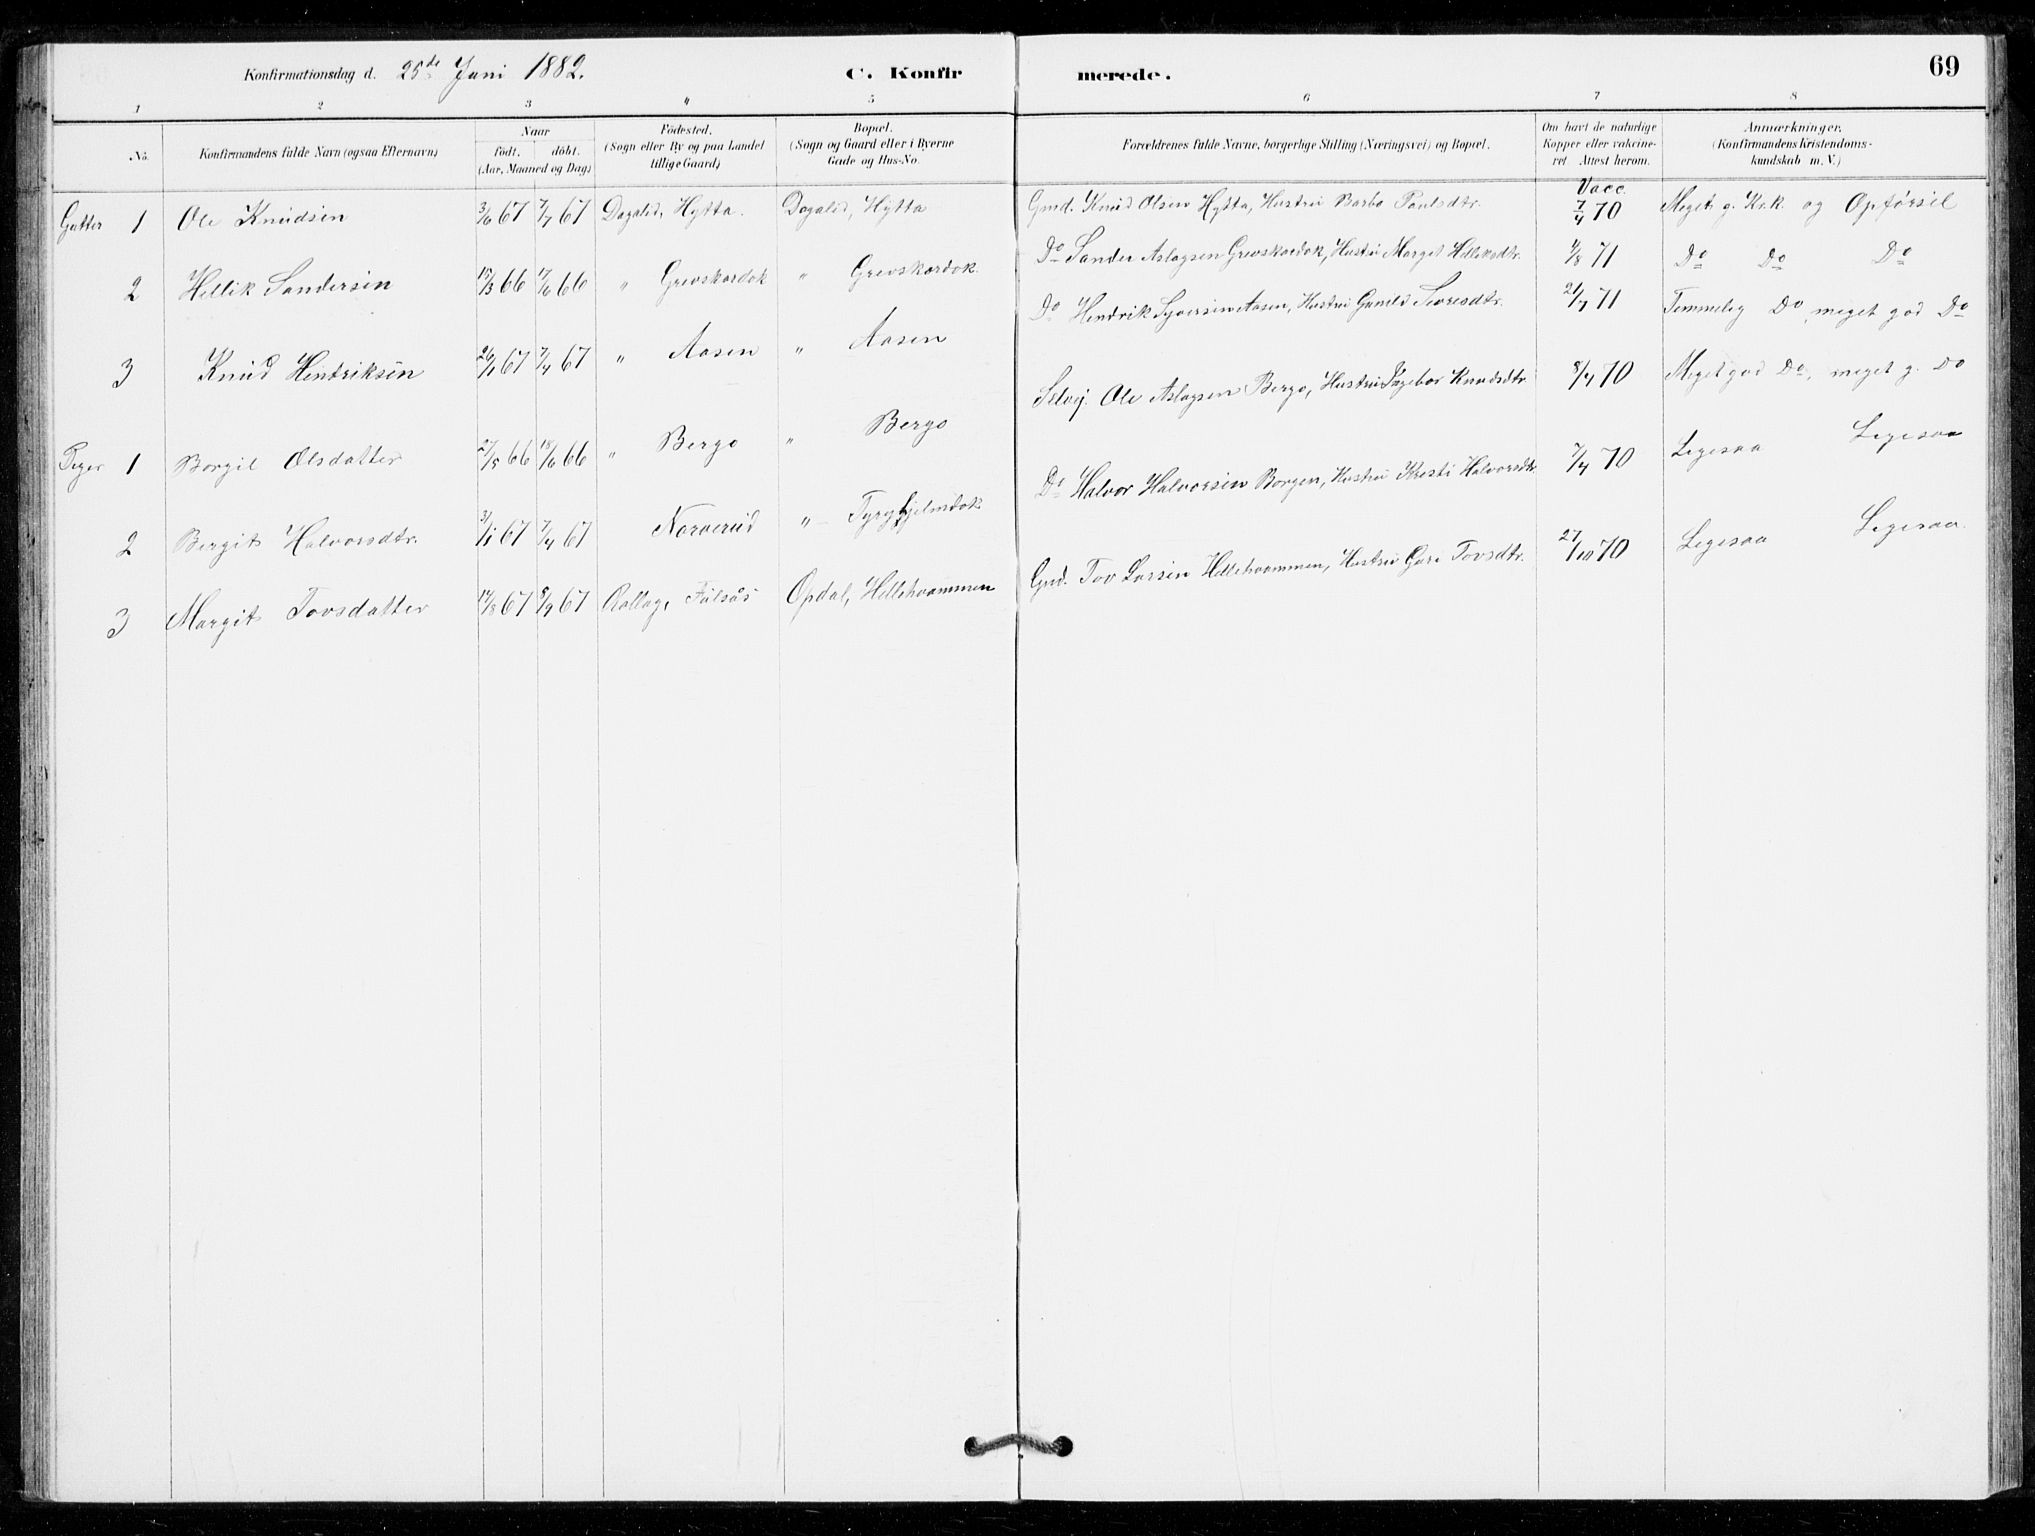 Konfirmationsdag d. 25de Juni 1882. C. Konfirmerede. 69
1 2 3 " 5 6 7 8
No. Konfirmandens fulde Navn (ogsaa Efternavn) Naar födt. döbt. (Aar, Maaned og Dag) Födested. (Sogn eller By og paa Landet tillige Gaard) Bopæl. (Sogn og Gaard eller i Byerne Gade og Hus-No. Forældrenes fulde Navne, borgerlige Stilling (Næringsvei) og Bopæl. Om havt de naturlige Kopper eller vakcineret Attest herom. Anmærkninger. (Konfirmandens Kristendomskundskab m. V.)
Gutter 1 Ole Knudsen 3/6 67 7/7 67 Dagalid, Hytta. Dagalid, Hytta Gmd. Knud Olsen Hytta, Hustru Barbo Paulsdtr. Vacc. 7/4 70 Meget g. Kr.k. og Opførsel
2 Hellik Sandersen 17/6 66 " Grevskardok " Grevskardok. Do Sander Aslagsen Grevskardok, Hustru Margit Helliksdtr. 71 Do Do Do
3 Knud Hendriksen 67 7/4 67 " Aasen " Aasen Do Hendrik Syversen Aasen, Hustru Gunild Sevresdtr. 71 Temmelig Do, meget god Do
Piger 1 Borgil Olsdatter 27/5 66 18/6 66 " Bergo " Bergo Selvej. Ole Aslagsen Bergo, Hustru Ingebor Knudsdtr. 8/4 70 Meget god Do, meget g. Do
2 Bergit Halvorsdtr. 3/1 67 7/4 67 Norverud " Tyrghjelmdok Do Halvor Halvorsen Borgen, Hustru Kresti Halvorsdtr. 7/4 70 Ligesaa Ligesaa
3 Margit Tovsdatter 67 8/9 67 Rollag, Fulsås Opdal, Hellehvammen Gmd. Tov Larsen Hellehvammen, Hustru Guri Tovsdtr. 27/10 70 Ligesaa Ligesaa.